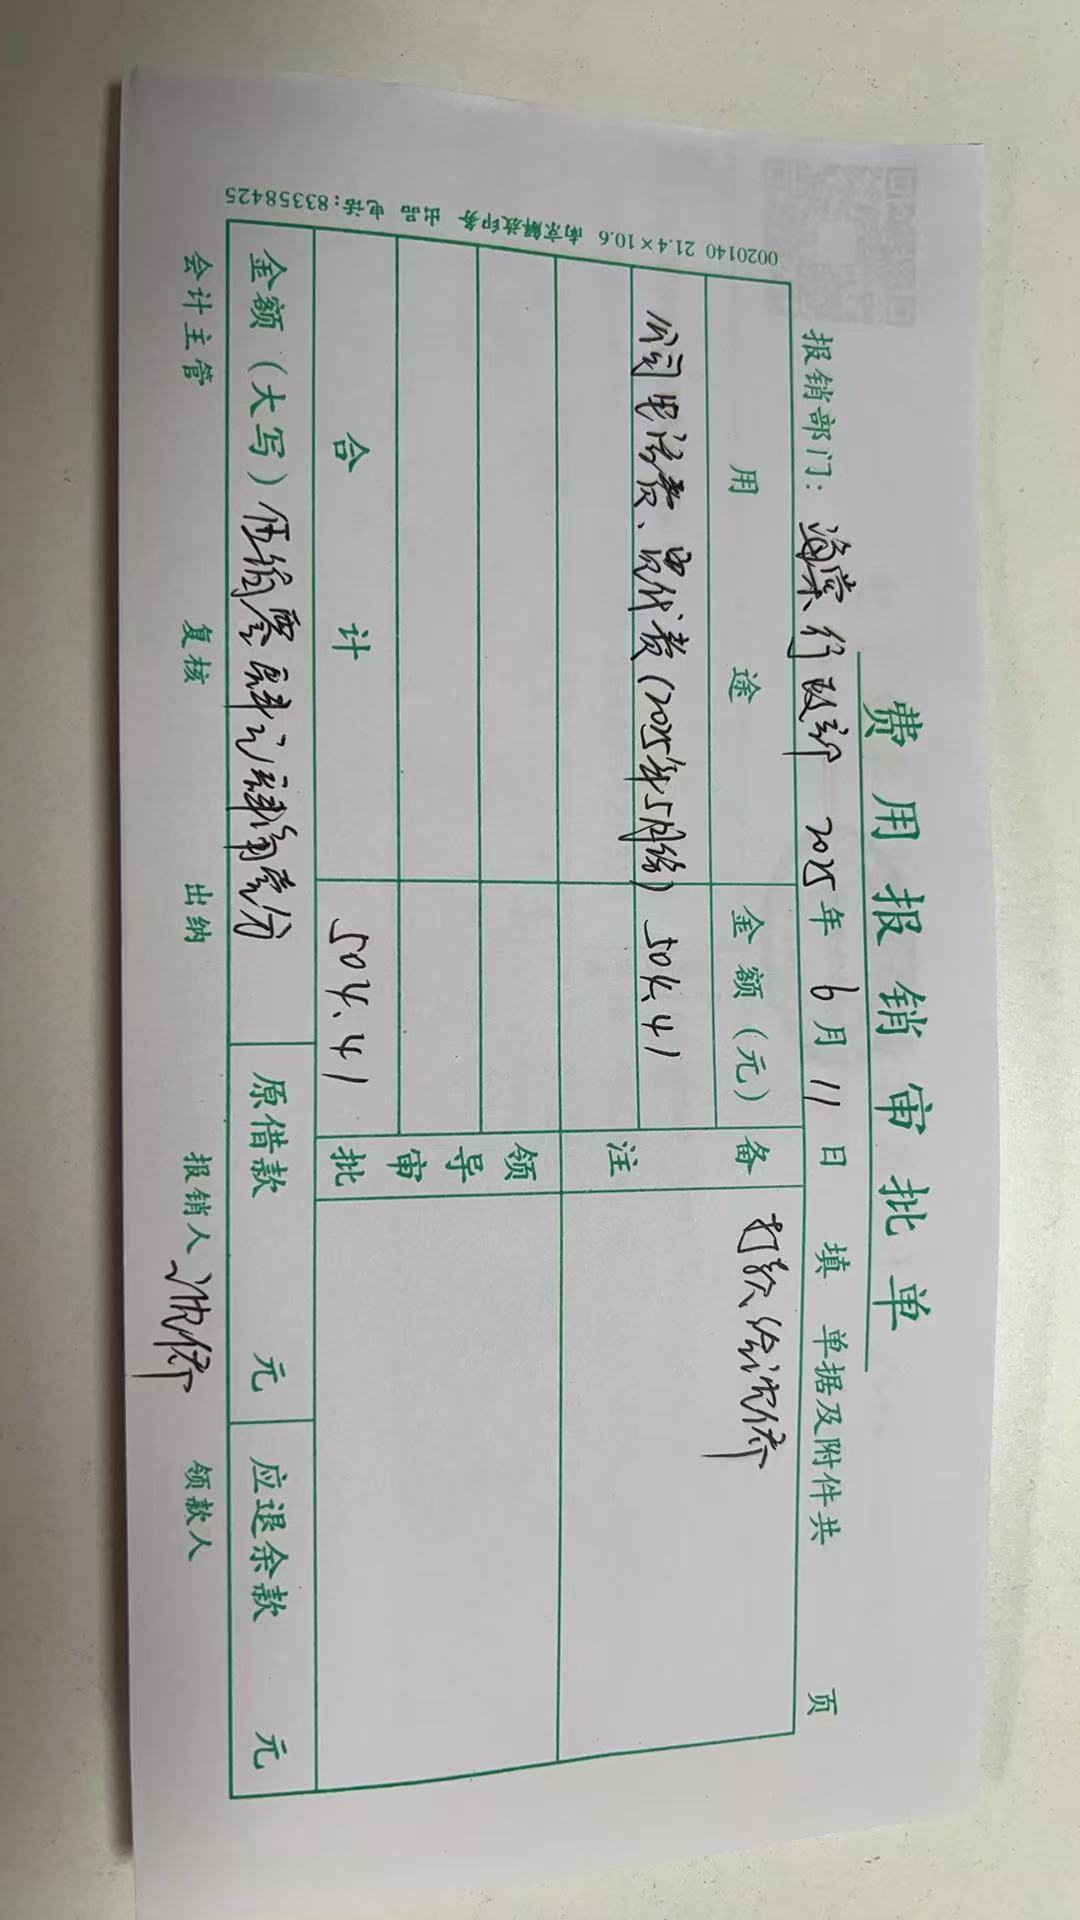 费用报销审批单
报销部门：海棠行政部 2025年 6月 11日 填 单据及附件共 页
用途 金额（元） 备注 打款给沈侨
公司电话费、宽代费（2025年5月份） 504.41
合计 504.41 领导审批
金额（大写）伍佰零肆元肆角壹分 原借款 元 应退余款 元
会计主管 复核 出纳 报销人 沈侨 领款人
0020140 21.4×10.6 南京解放印务 出品 电话：83358425